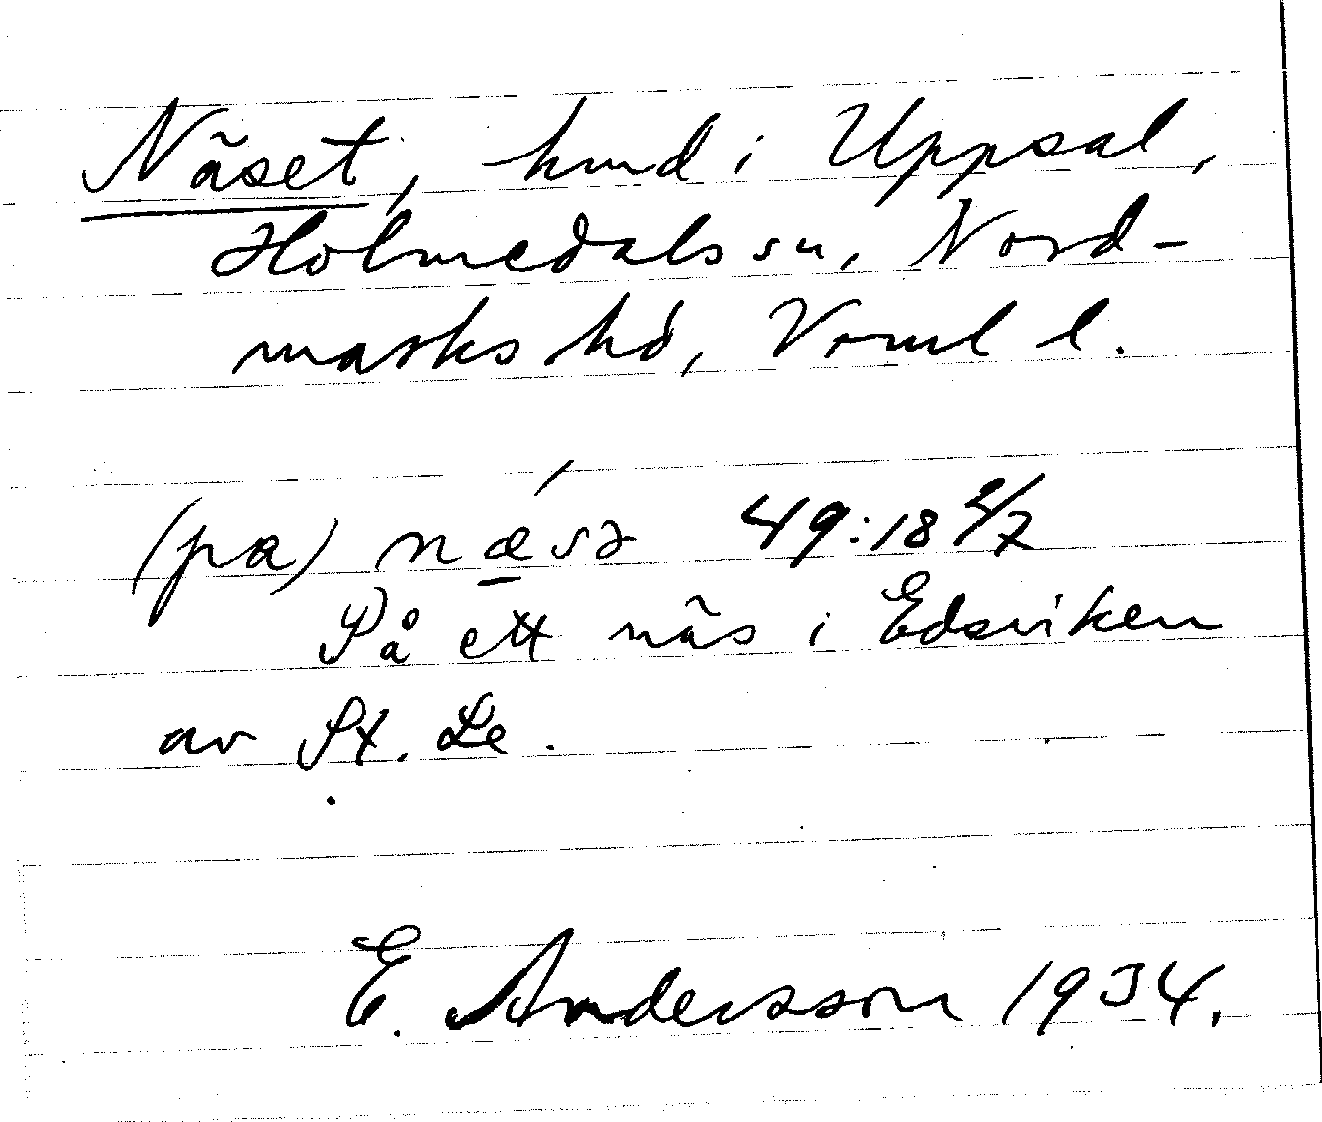 Näset, hmd i Uppsal,
Holmedals sn, Nord-
marks hd, Vrml l.
(pa) nǽ̱sə 49:18 2/7
På ett näs i Edsviken
av St. Le.
E. Andersson 1934.